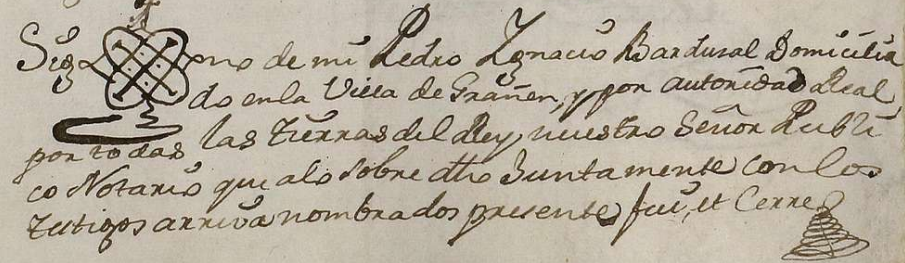 Sig no de mi Pedro Ygnacio Bardusal Domicilia
do en la Villa de Grañen, y por autoridad Real,
por todas las tierras del Rey nuestro Señor Publi
co Notario que a lo sobre dho Juntamente con los
testigos arriva nombrados presente fui, et Cerre